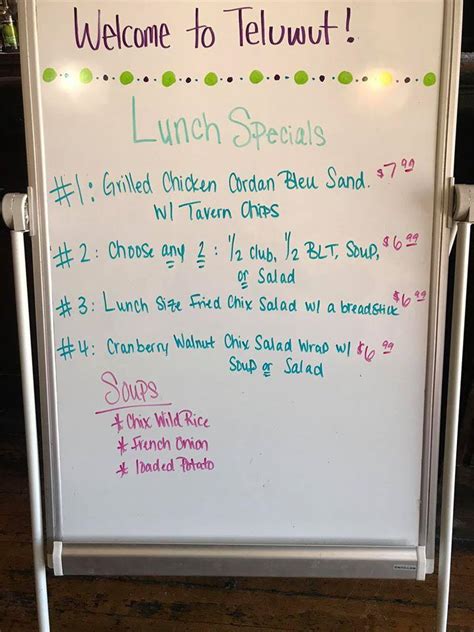 Welcome to Teluwut!
Lunch Specials
#1: Grilled Chicken Cordan Bleu Sand. $7.99
w/ Tavern Chips
#2: Choose any 2: 1/2 Club, 1/2 BLT, Soup, $6.99
or Salad
#3: Lunch Size Fried Chix Salad w/ a breadstick $6.99
#4: Cranberry Walnut Chix Salad Wrap w/ $6.99
Soup or Salad
Soups
* Chix Wild Rice
* French Onion
* loaded Potato